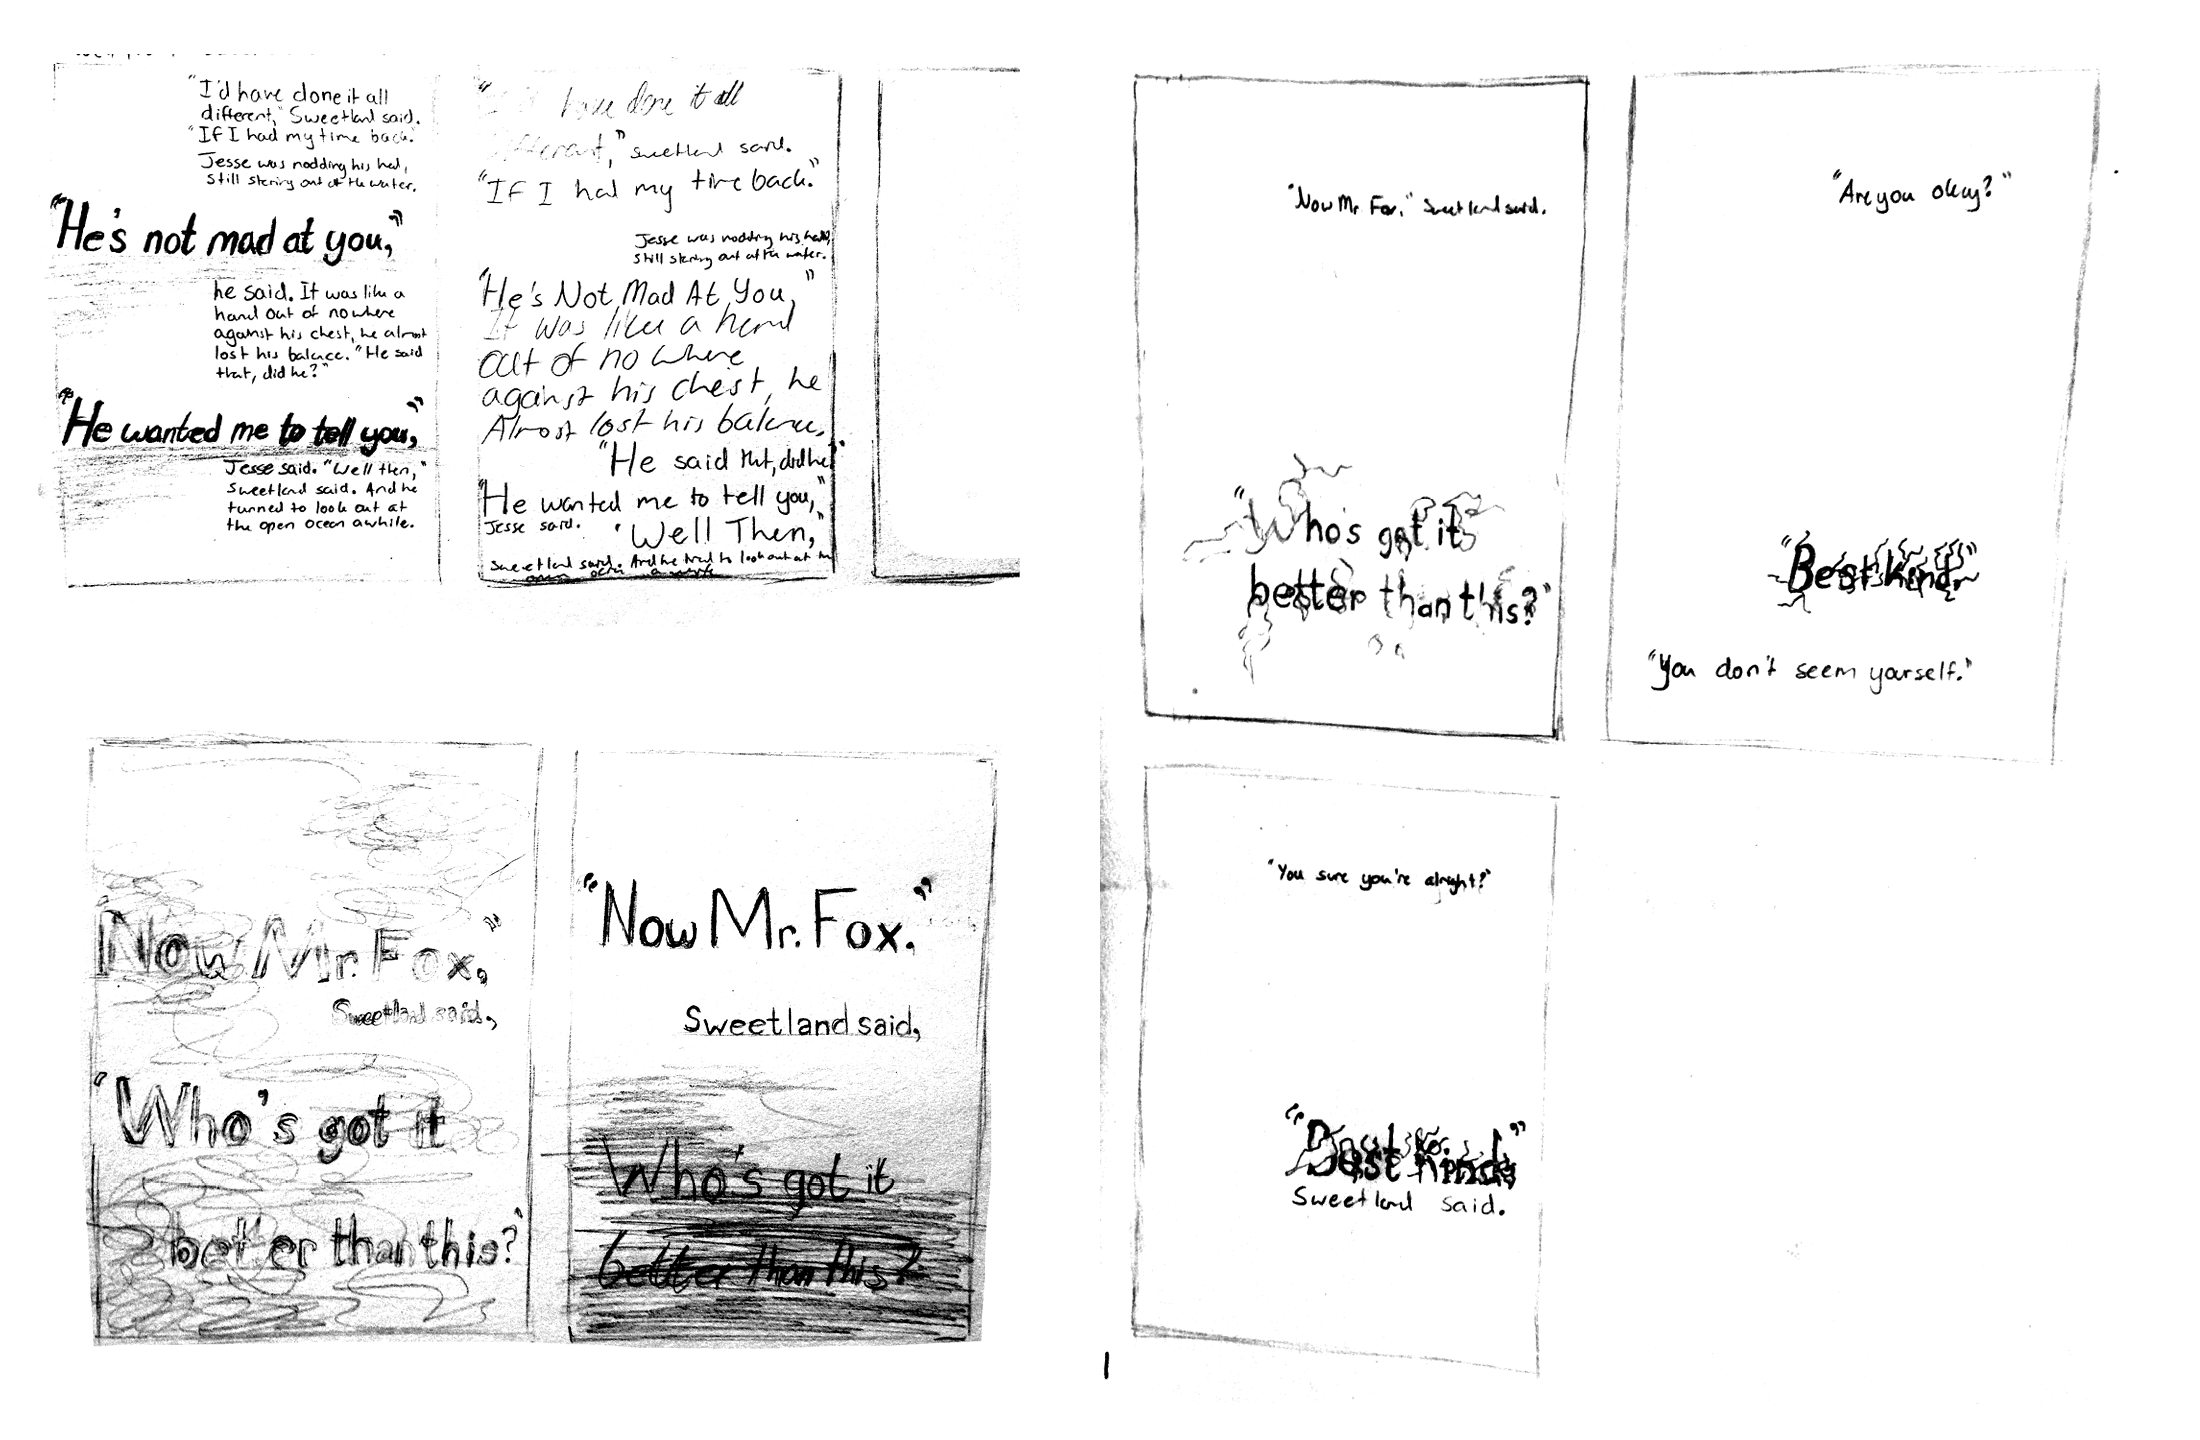 "I'd have done it all
different," Sweetland said.
"If I had my time back."
Jesse was nodding his head,
still staring out at the water.
"He's not mad at you,"
he said. It was like a
hand out of nowhere
against his chest, he almost
lost his balance. "He said
that, did he?"
"He wanted me to tell you,"
Jesse said. "Well then,"
Sweetland said. And he
turned to look out at
the open ocean awhile.
have done it all
different," Sweetland said.
"If I had my time back."
Jesse was nodding his head,
still staring out at the water.
"He's Not Mad At You,"
It was like a hand
out of nowhere
against his chest, he
Almost lost his balance.
"He said that, did he?
"He wanted me to tell you,"
Jesse said. "Well Then,"
Sweetland said. And he turned to look out at the
open ocean awhile
"Now Mr. Fox." Sweetland said.
"Who's got it
better than this?"
"Are you okay?"
"Best kind."
"You don't seem yourself."
Now Mr. Fox,"
Sweetland said,
"Who's got it
better than this?"
"Now Mr. Fox."
Sweetland said,
Who's got it
better than this?
"You sure you're alright?"
"Best kind,"
Sweetland said.